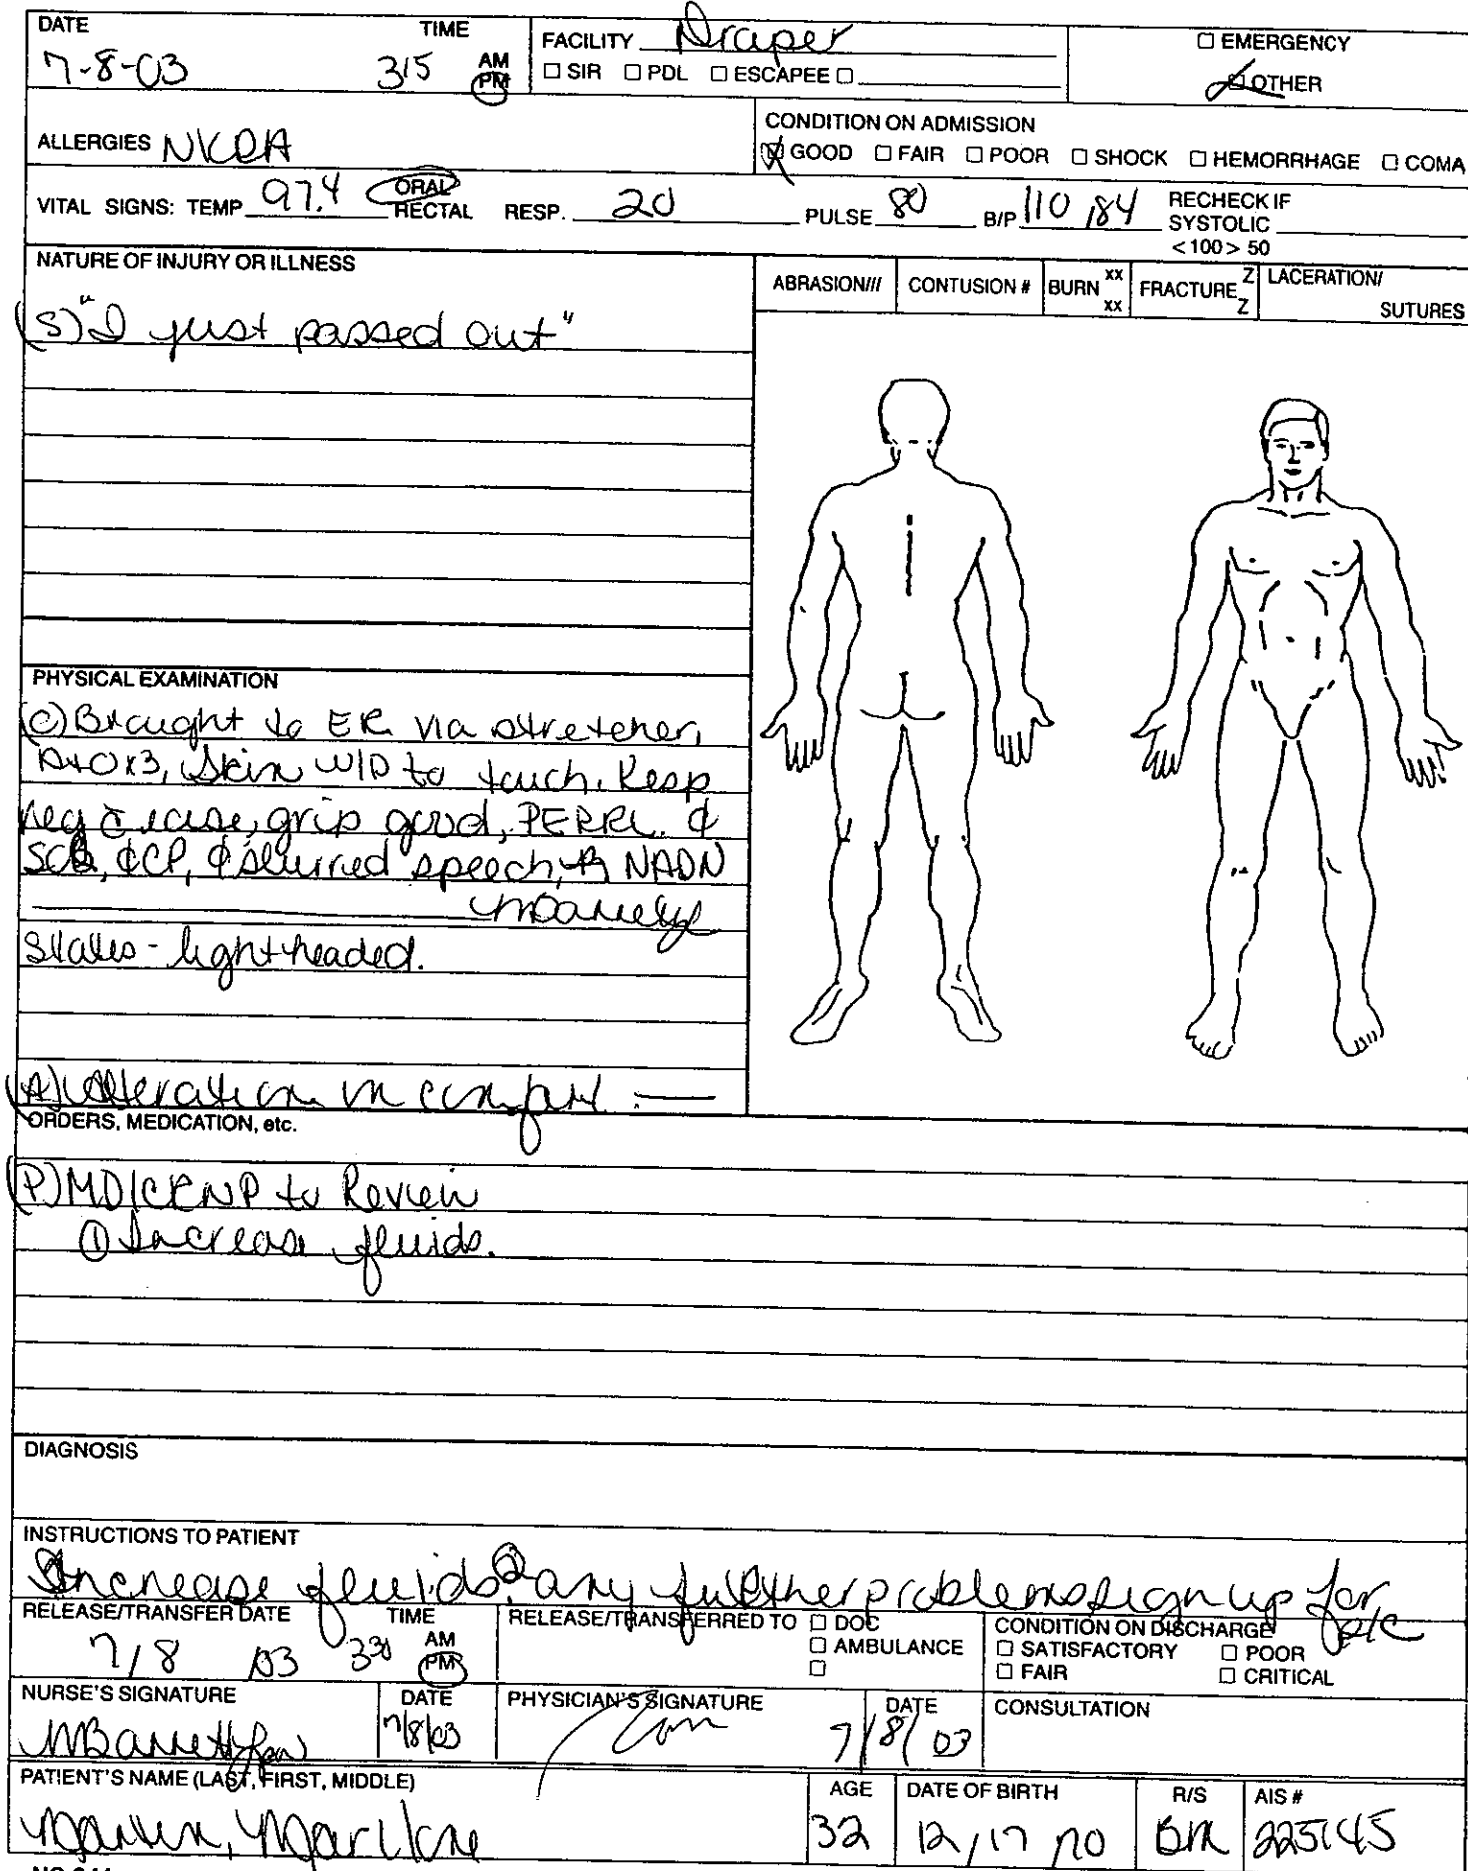 DATE TIME FACILITY Draper □ EMERGENCY
7-8-03 315 AM PM □ SIR □ PDL □ ESCAPEE □ □ OTHER
ALLERGIES NKDA CONDITION ON ADMISSION
□ GOOD □ FAIR □ POOR □ SHOCK □ HEMORRHAGE □ COMA
VITAL SIGNS: TEMP 97.4 ORAL RECTAL RESP. 20 PULSE 80 B/P 110 / 84 RECHECK IF SYSTOLIC <100> 50
NATURE OF INJURY OR ILLNESS
ABRASION/// CONTUSION # BURN xx xx FRACTURE Z Z LACERATION/ SUTURES
(S) "I just passed out"
PHYSICAL EXAMINATION
(O) Brought to ER via stretcher,
A+Ox3, Skin W/D to touch. Resp
reg c̄ ease, grip good, PERRL. ∅
SOB, ∅CP, ∅ slurred speech, NADN
States - lightheaded.
(A) Alteration in comfort.
ORDERS, MEDICATION, etc.
(P) MD/CRNP to Review
① Increase fluids.
DIAGNOSIS
INSTRUCTIONS TO PATIENT
Increase fluids ② any further problems sign up for
RELEASE/TRANSFER DATE TIME RELEASE/TRANSFERRED TO □ DOC CONDITION ON DISCHARGE
7/8 /03 330 AM PM □ AMBULANCE □ SATISFACTORY □ POOR
□ □ FAIR □ CRITICAL
NURSE'S SIGNATURE DATE PHYSICIAN'S SIGNATURE DATE CONSULTATION
MBarrett 7/8/03 7/8/03
PATIENT'S NAME (LAST, FIRST, MIDDLE) AGE DATE OF BIRTH R/S AIS #
32 12/17 70 BM 225145